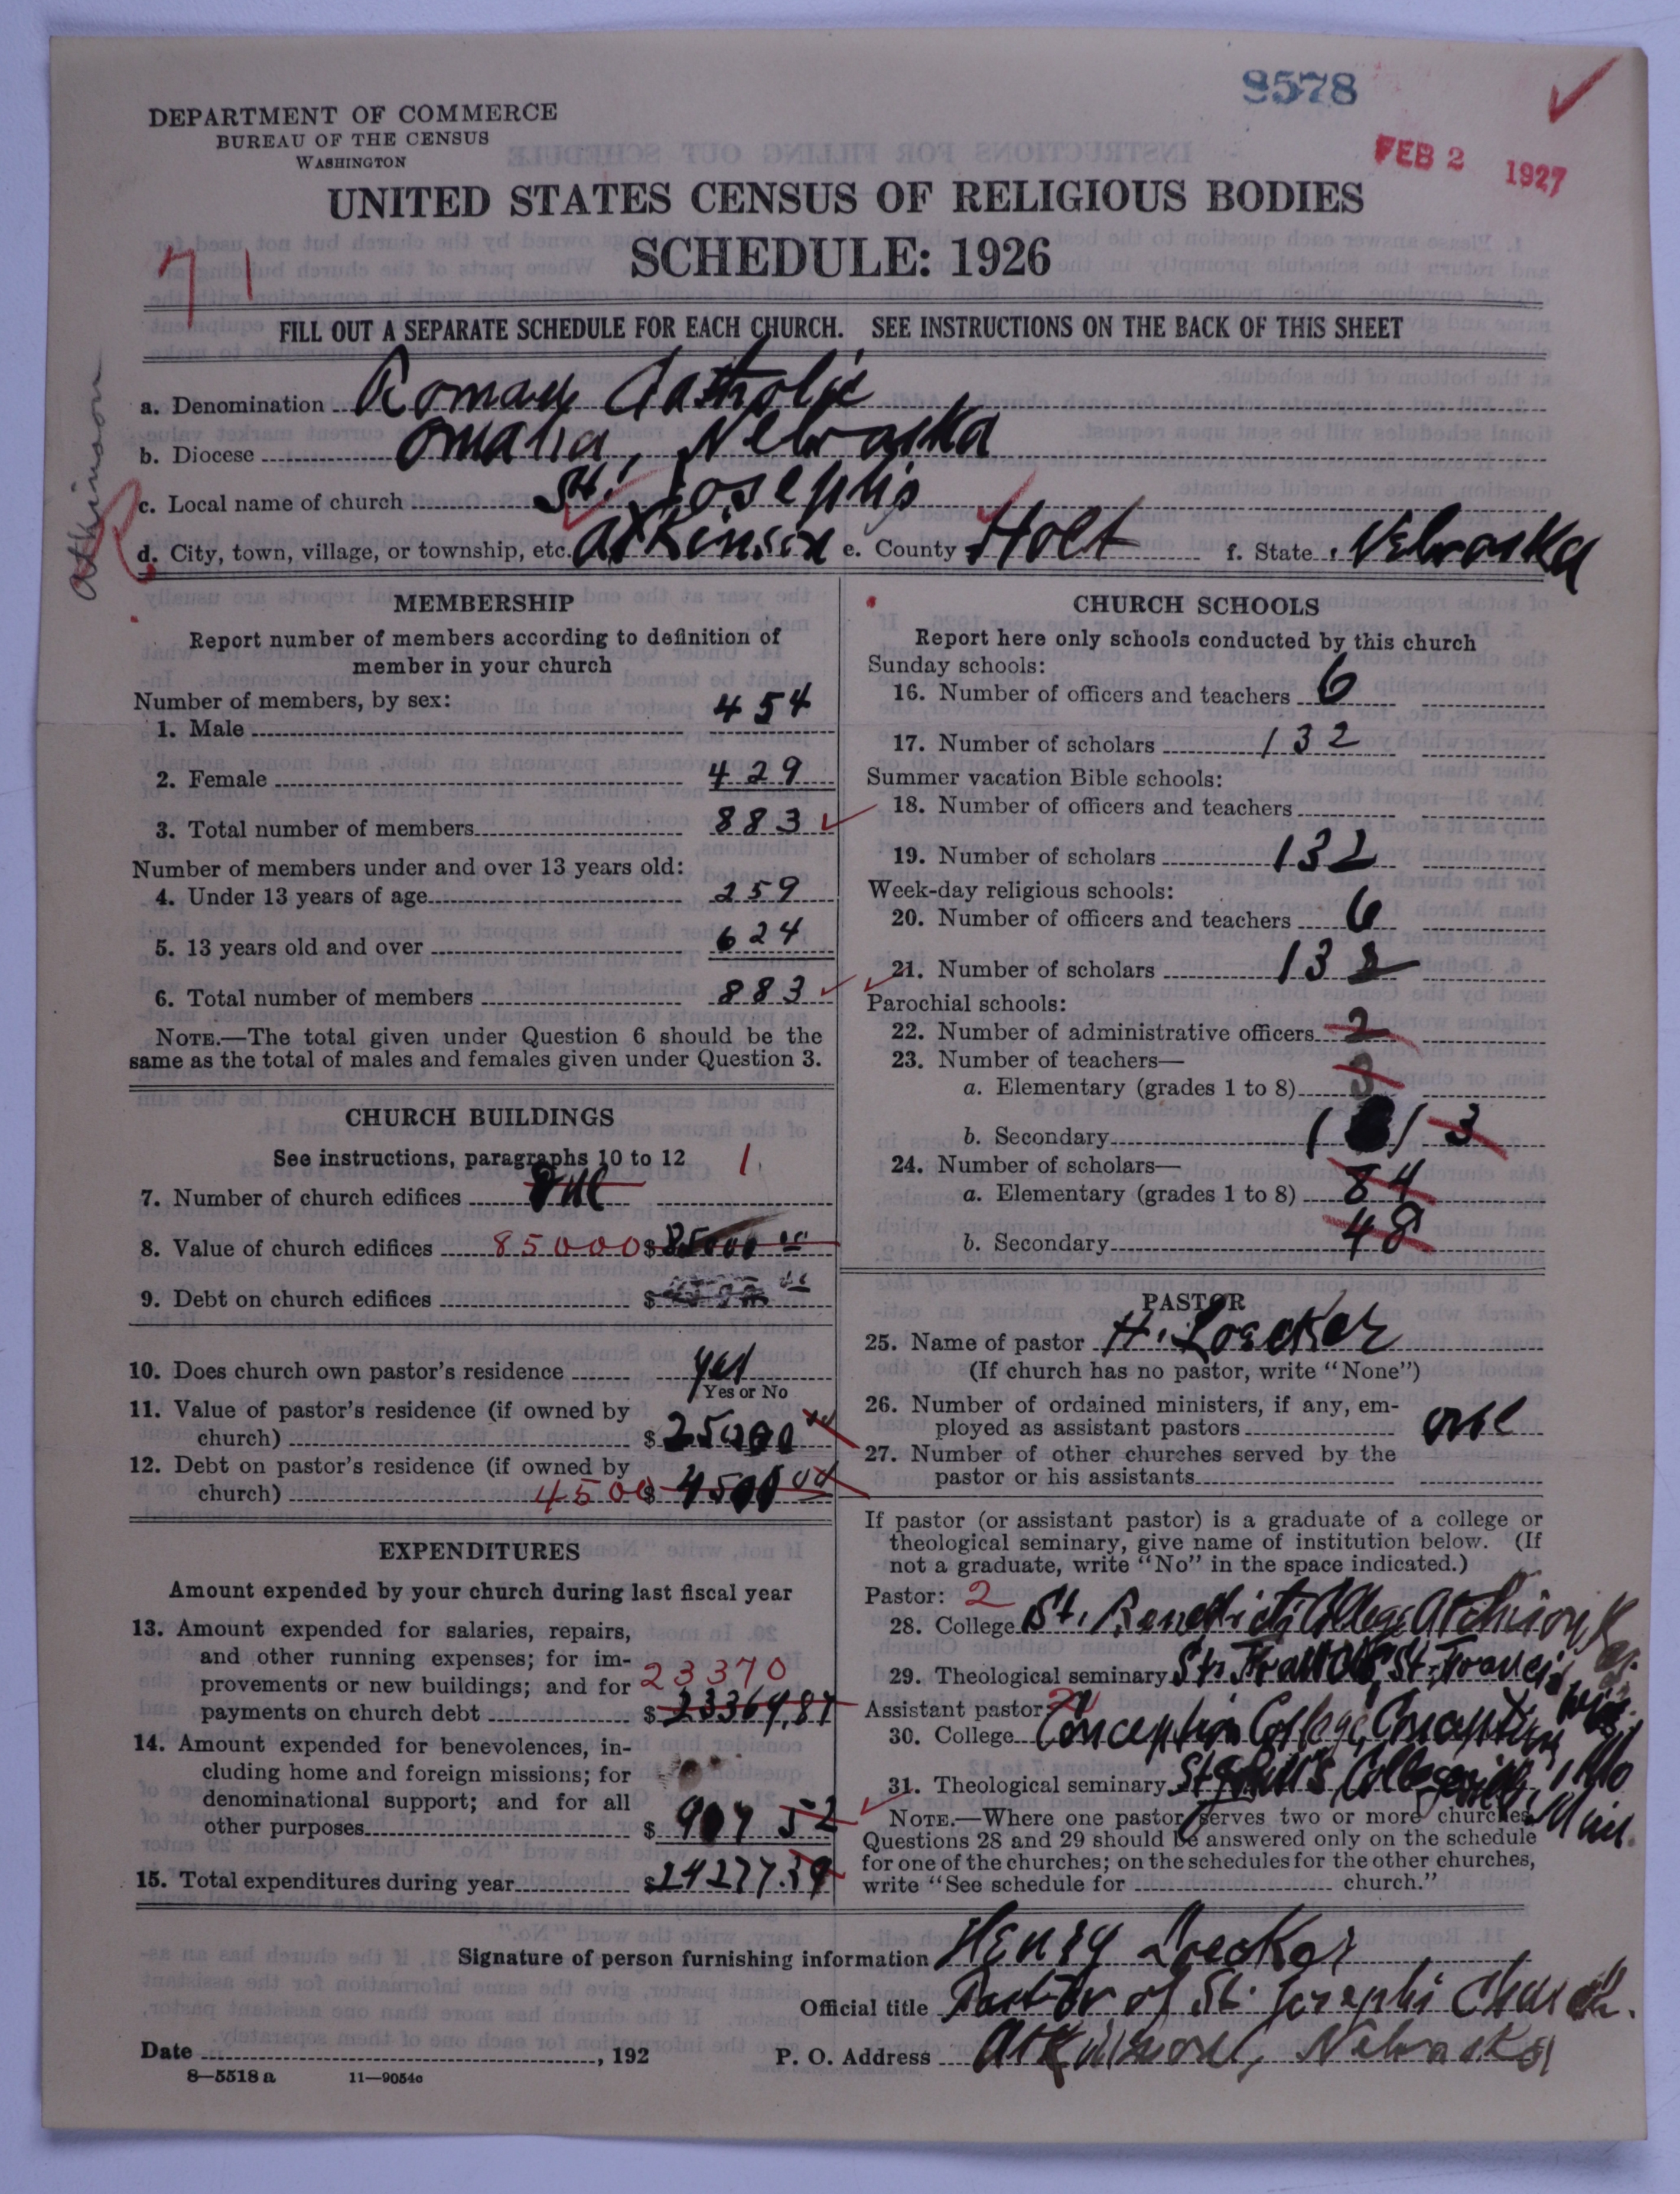 8578
FEB 2 1927
DEPARTMENT OF COMMERCE
BUREAU OF THE CENSUS
WASHINGTON
UNITED STATES CENSUS OF RELIGIOUS BODIES
SCHEDULE: 1926
71
FILL OUT A SEPARATE SCHEDULE FOR EACH CHURCH. SEE INSTRUCTIONS ON THE BACK OF THIS SHEET
Atkinson
a. Denomination Roman Catholic
b. Diocese Omaha, Nebraska
c. Local name of church St. Joseph's
d. City, town, village, or township, etc. Atkinson e. County Holt f. State Nebraska
MEMBERSHIP
Report number of members according to definition of
member in your church
Number of members, by sex:
1. Male 454
2. Female 429
3. Total number of members 883
Number of members under and over 13 years old:
4. Under 13 years of age 259
5. 13 years old and over 624
6. Total number of members 883
NOTE.—The total given under Question 6 should be the
same as the total of males and females given under Question 3.
CHURCH BUILDINGS
See instructions, paragraphs 10 to 12 1
7. Number of church edifices one
8. Value of church edifices 85000 $ 85000 00
9. Debt on church edifices $
10. Does church own pastor's residence yes
Yes or No
11. Value of pastor's residence (if owned by
church) $ 25000
12. Debt on pastor's residence (if owned by
church) 4500 $ 4500 00
EXPENDITURES
Amount expended by your church during last fiscal year
13. Amount expended for salaries, repairs,
and other running expenses; for im-
provements or new buildings; and for 23370
payments on church debt $ 23369,87
14. Amount expended for benevolences, in-
cluding home and foreign missions; for
denominational support; and for all
other purposes $ 907 52
15. Total expenditures during year $ 24277.39
CHURCH SCHOOLS
Report here only schools conducted by this church
Sunday schools:
16. Number of officers and teachers 6
17. Number of scholars 132
Summer vacation Bible schools:
18. Number of officers and teachers
19. Number of scholars 132
Week-day religious schools:
20. Number of officers and teachers 6
21. Number of scholars 132
Parochial schools:
22. Number of administrative officers 2
23. Number of teachers—
a. Elementary (grades 1 to 8) 3
b. Secondary 3
24. Number of scholars—
a. Elementary (grades 1 to 8) 84
b. Secondary 48
PASTOR
25. Name of pastor H. Loecker
(If church has no pastor, write "None")
26. Number of ordained ministers, if any, em-
ployed as assistant pastors one
27. Number of other churches served by the
pastor or his assistants
If pastor (or assistant pastor) is a graduate of a college or
theological seminary, give name of institution below. (If
not a graduate, write "No" in the space indicated.)
Pastor: 2
28. College St. Benedict's College, Atchison, Kas.
29. Theological seminary St. Francis, St. Francis, Wis.
Assistant pastor:
30. College Conception College, Conception, Mo
31. Theological seminary St. Paul's College, Minn.
NOTE.—Where one pastor serves two or more churches,
Questions 28 and 29 should be answered only on the schedule
for one of the churches; on the schedules for the other churches,
write "See schedule for church."
Signature of person furnishing information Henry Loecker
Official title Pastor of St. Joseph's Church.
Date , 192 P. O. Address Atkinson, Nebraska
8—5518 a 11—9054c